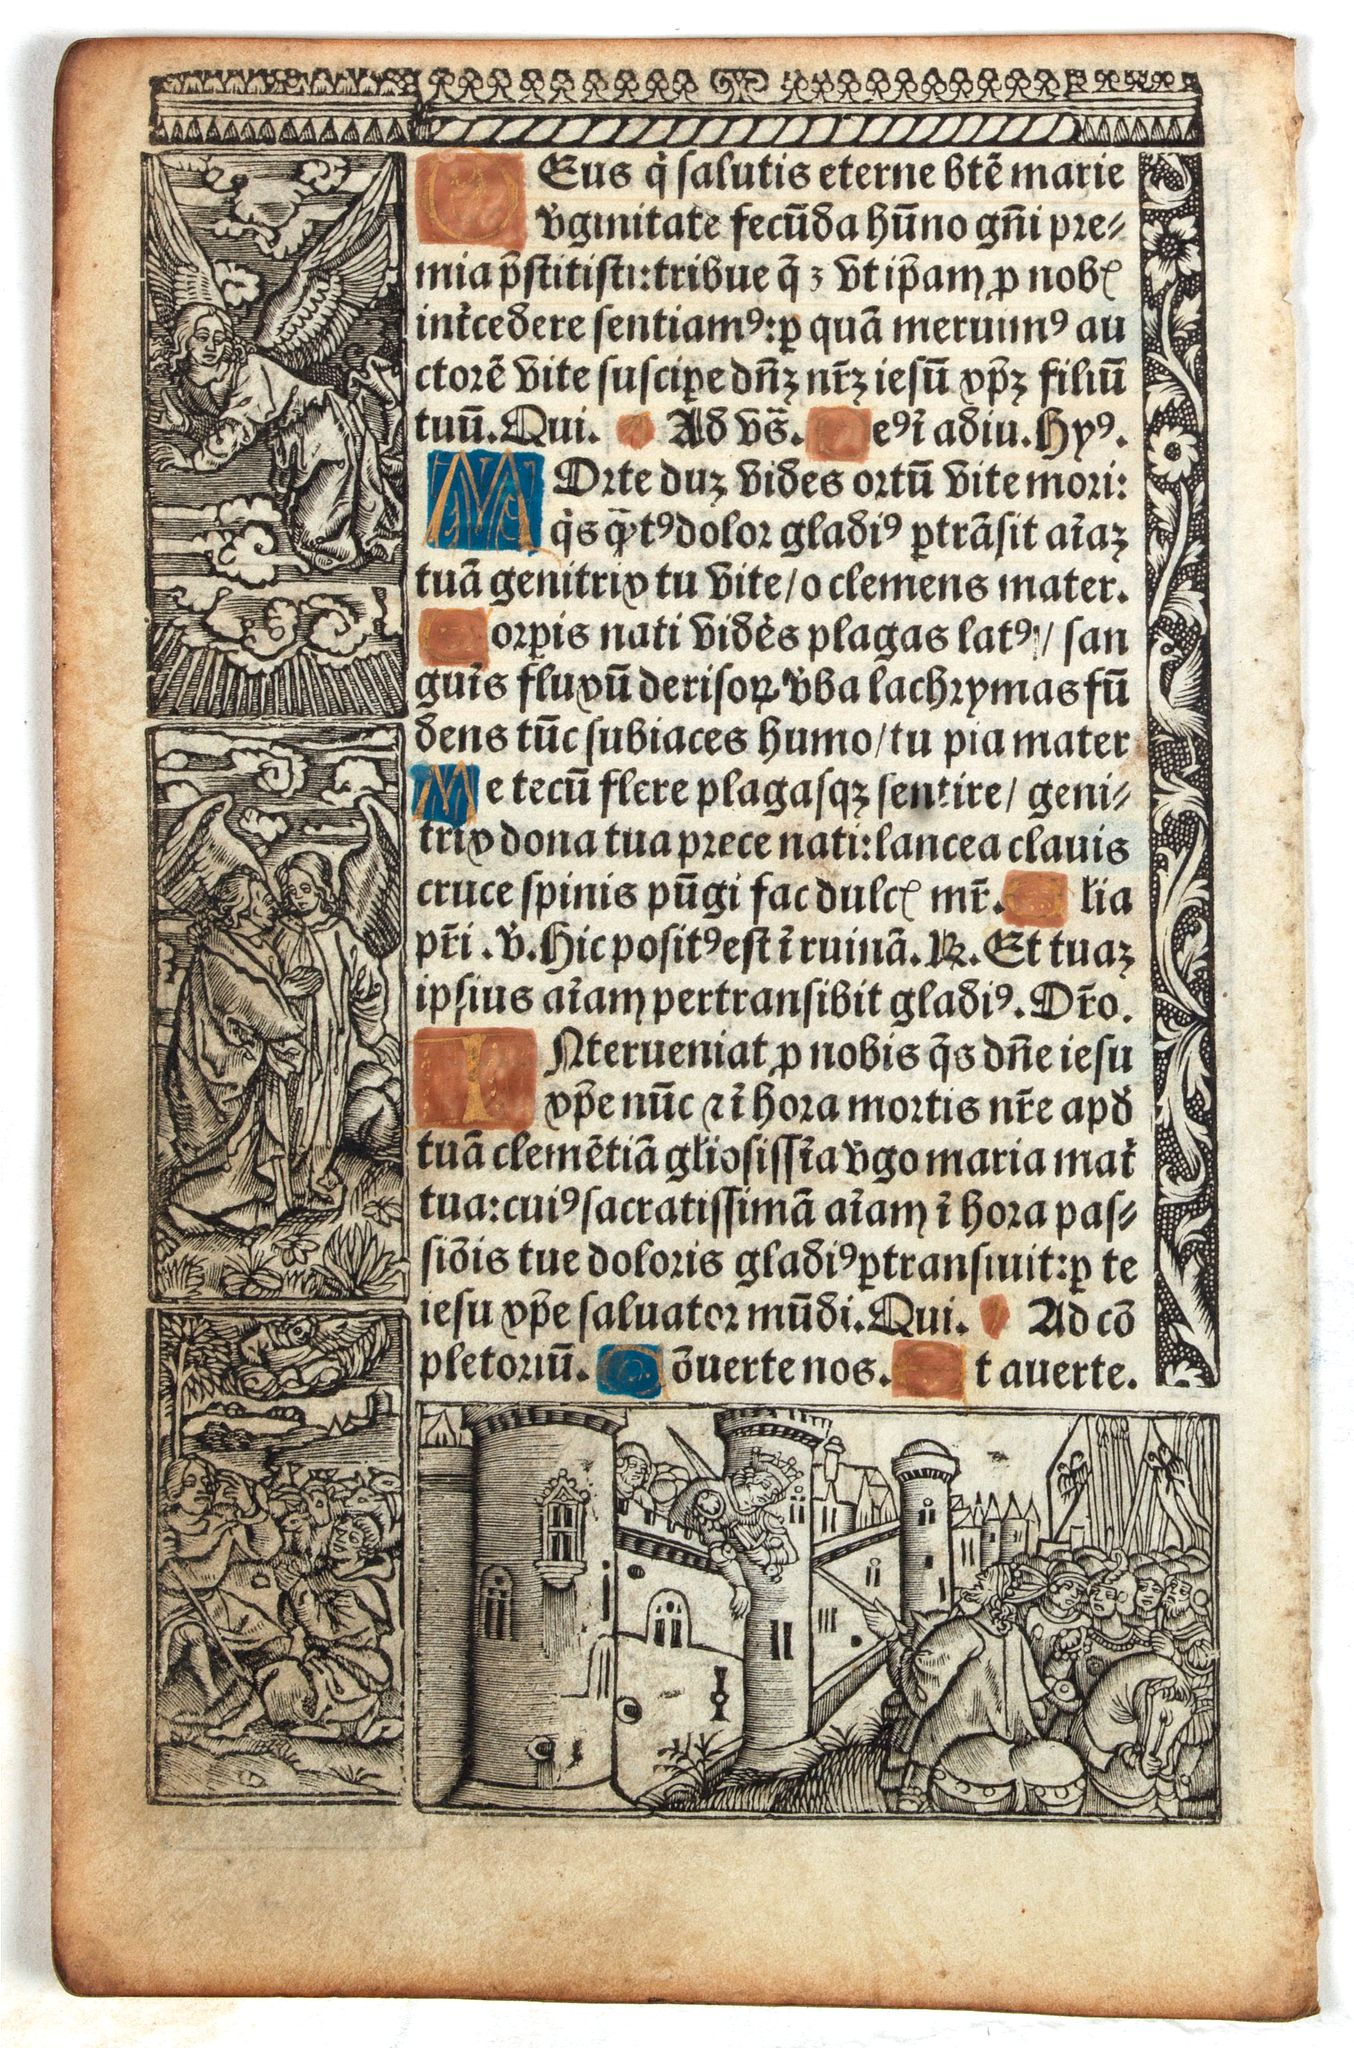 DEus q̇ salutis eterne btē marie
v̇ginitate fecūda hūno gn̄i pre⸗
mia p̄stitisti: tribue q̄ꝫ vt ip̄am ꝓ nobꝭ
int̄cedere sentiamꝰ: ꝑ quā meruimꝰ au
ctorē vite suscipe dn̄ꝫ nr̄ꝫ iesū xp̄ꝫ filiū
tuū. Qui. Ad vs̄. De⁹ ī adiu. Hyꝰ.
MOrte duꝫ vides ortū vite mori:
q̇s q̄tꝰ dolor gladiꝰ ꝑtrāsit aīaꝫ
tuā genitrix tu vite / o clemens mater.
Corpis nati vidēs plagas latꝰ / san
guīs fluxū derisoꝝ v̇ba lachrymas fū
dens tūc subiaces humo / tu pia mater
Me tecū flere plagasqꝫ sentire / geni⸗
trix dona tua prece nati: lancea clauis
cruce spinis pūgi fac dulcꝭ mr̄. Glia
pr̄i. ℣. Hic positꝰ est ī ruinā. ℟. Et tuaꝫ
ipsius aīam pertransibit gladiꝰ. Or̄o.
INterueniat ꝓ nobis q̄s dn̄e iesu
xp̄e nūc ⁊ ī hora mortis nr̄e apd̄
tuā clemētiā gliosissīa v̇go maria mat̄
tua: cuiꝰ sacratissimā aīam ī hora pas⸗
siōis tue doloris gladiꝰ ꝑtransiuit: ꝑ te
iesu xp̄e saluator mūdi. Qui. Ad cō
pletoriū. Cōuerte nos. Et auerte.